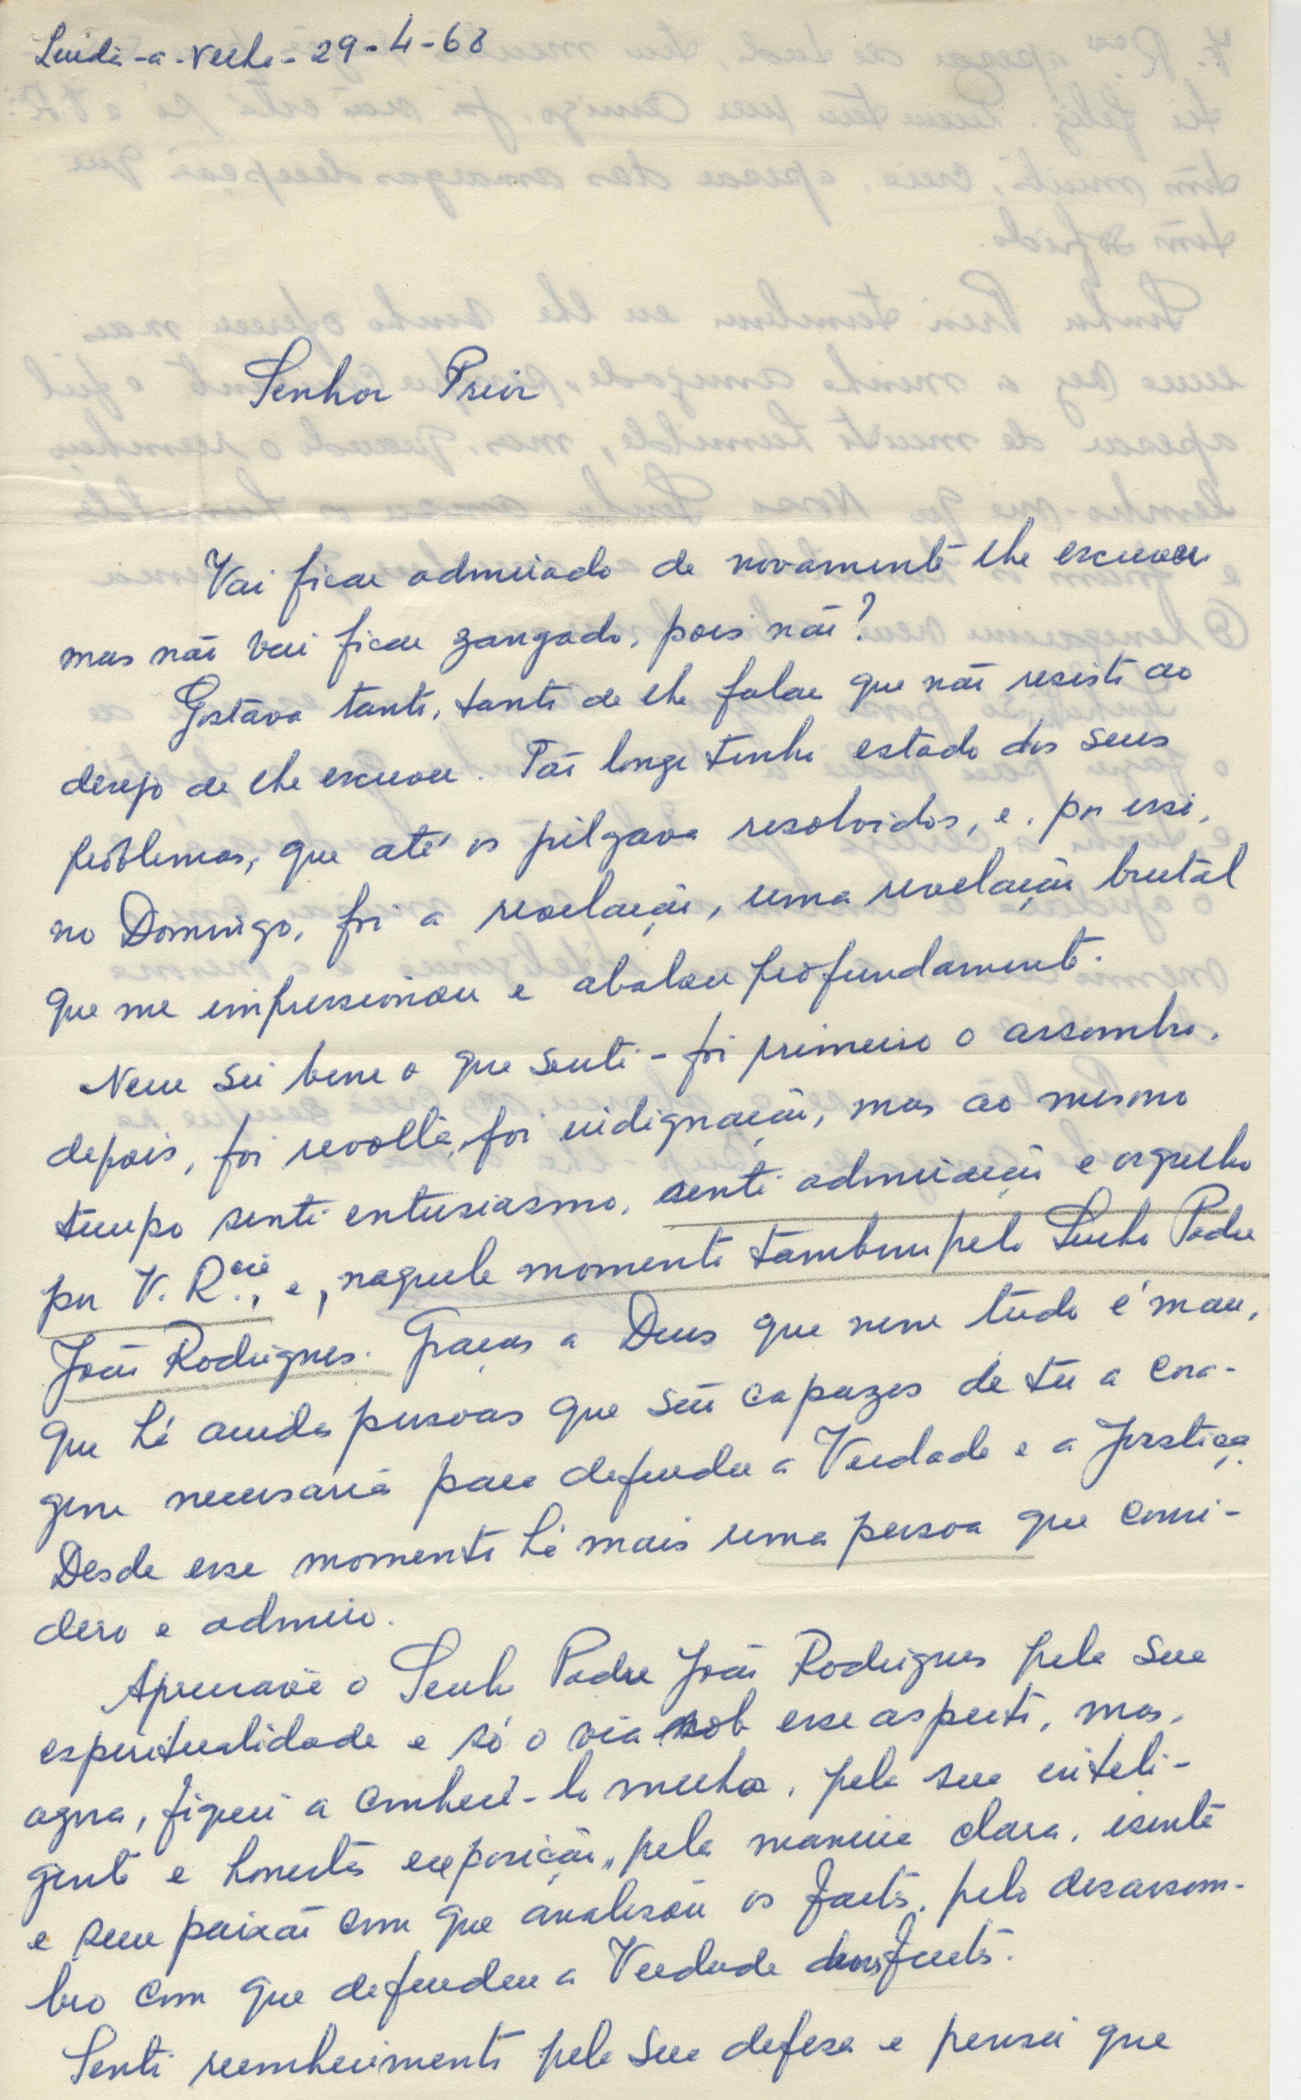 Linda-a-Velha - 29-4-68
Senhor Prior
Vai ficar admirado de novamente lhe escrever
mas não vai ficar zangado, pois não?
Gostava tanto, tanto de lhe falar que não resisti ao
desejo de lhe escrever. Tão longe tenho estado dos seus
problemas, que até os julgava resolvidos, e, por isso,
no Domingo, foi a revelação, uma revelação brutal
que me impressionou e abalou profundamente.
Nem sei bem o que senti - foi primeiro o assombro,
depois, foi revolta, foi indignação, mas ao mesmo
tempo senti entusiasmo, senti admiração e orgulho
por V. R.cia, e, naquele momento também pelo Senhor Padre
João Rodrigues. Graças a Deus que nem tudo é mau,
que há ainda pessoas que são capazes de ter a cora-
gem necessária para defender a Verdade e a Justiça.
Desde esse momento há mais uma pessoa que consi-
dero e admiro.
Apreciava o Senhor Padre João Rodrigues pela sua
espiritualidade e só o via sob esse aspecto, mas,
agora, fiquei a conhecê-lo melhor, pela sua inteli-
gente e honesta exposição, pela maneira clara, isenta
e sem paixão com que analisou os factos, pelo desassom-
bro com que defendeu a Verdade dos factos.
Senti reconhecimento pela sua defesa e pensei que